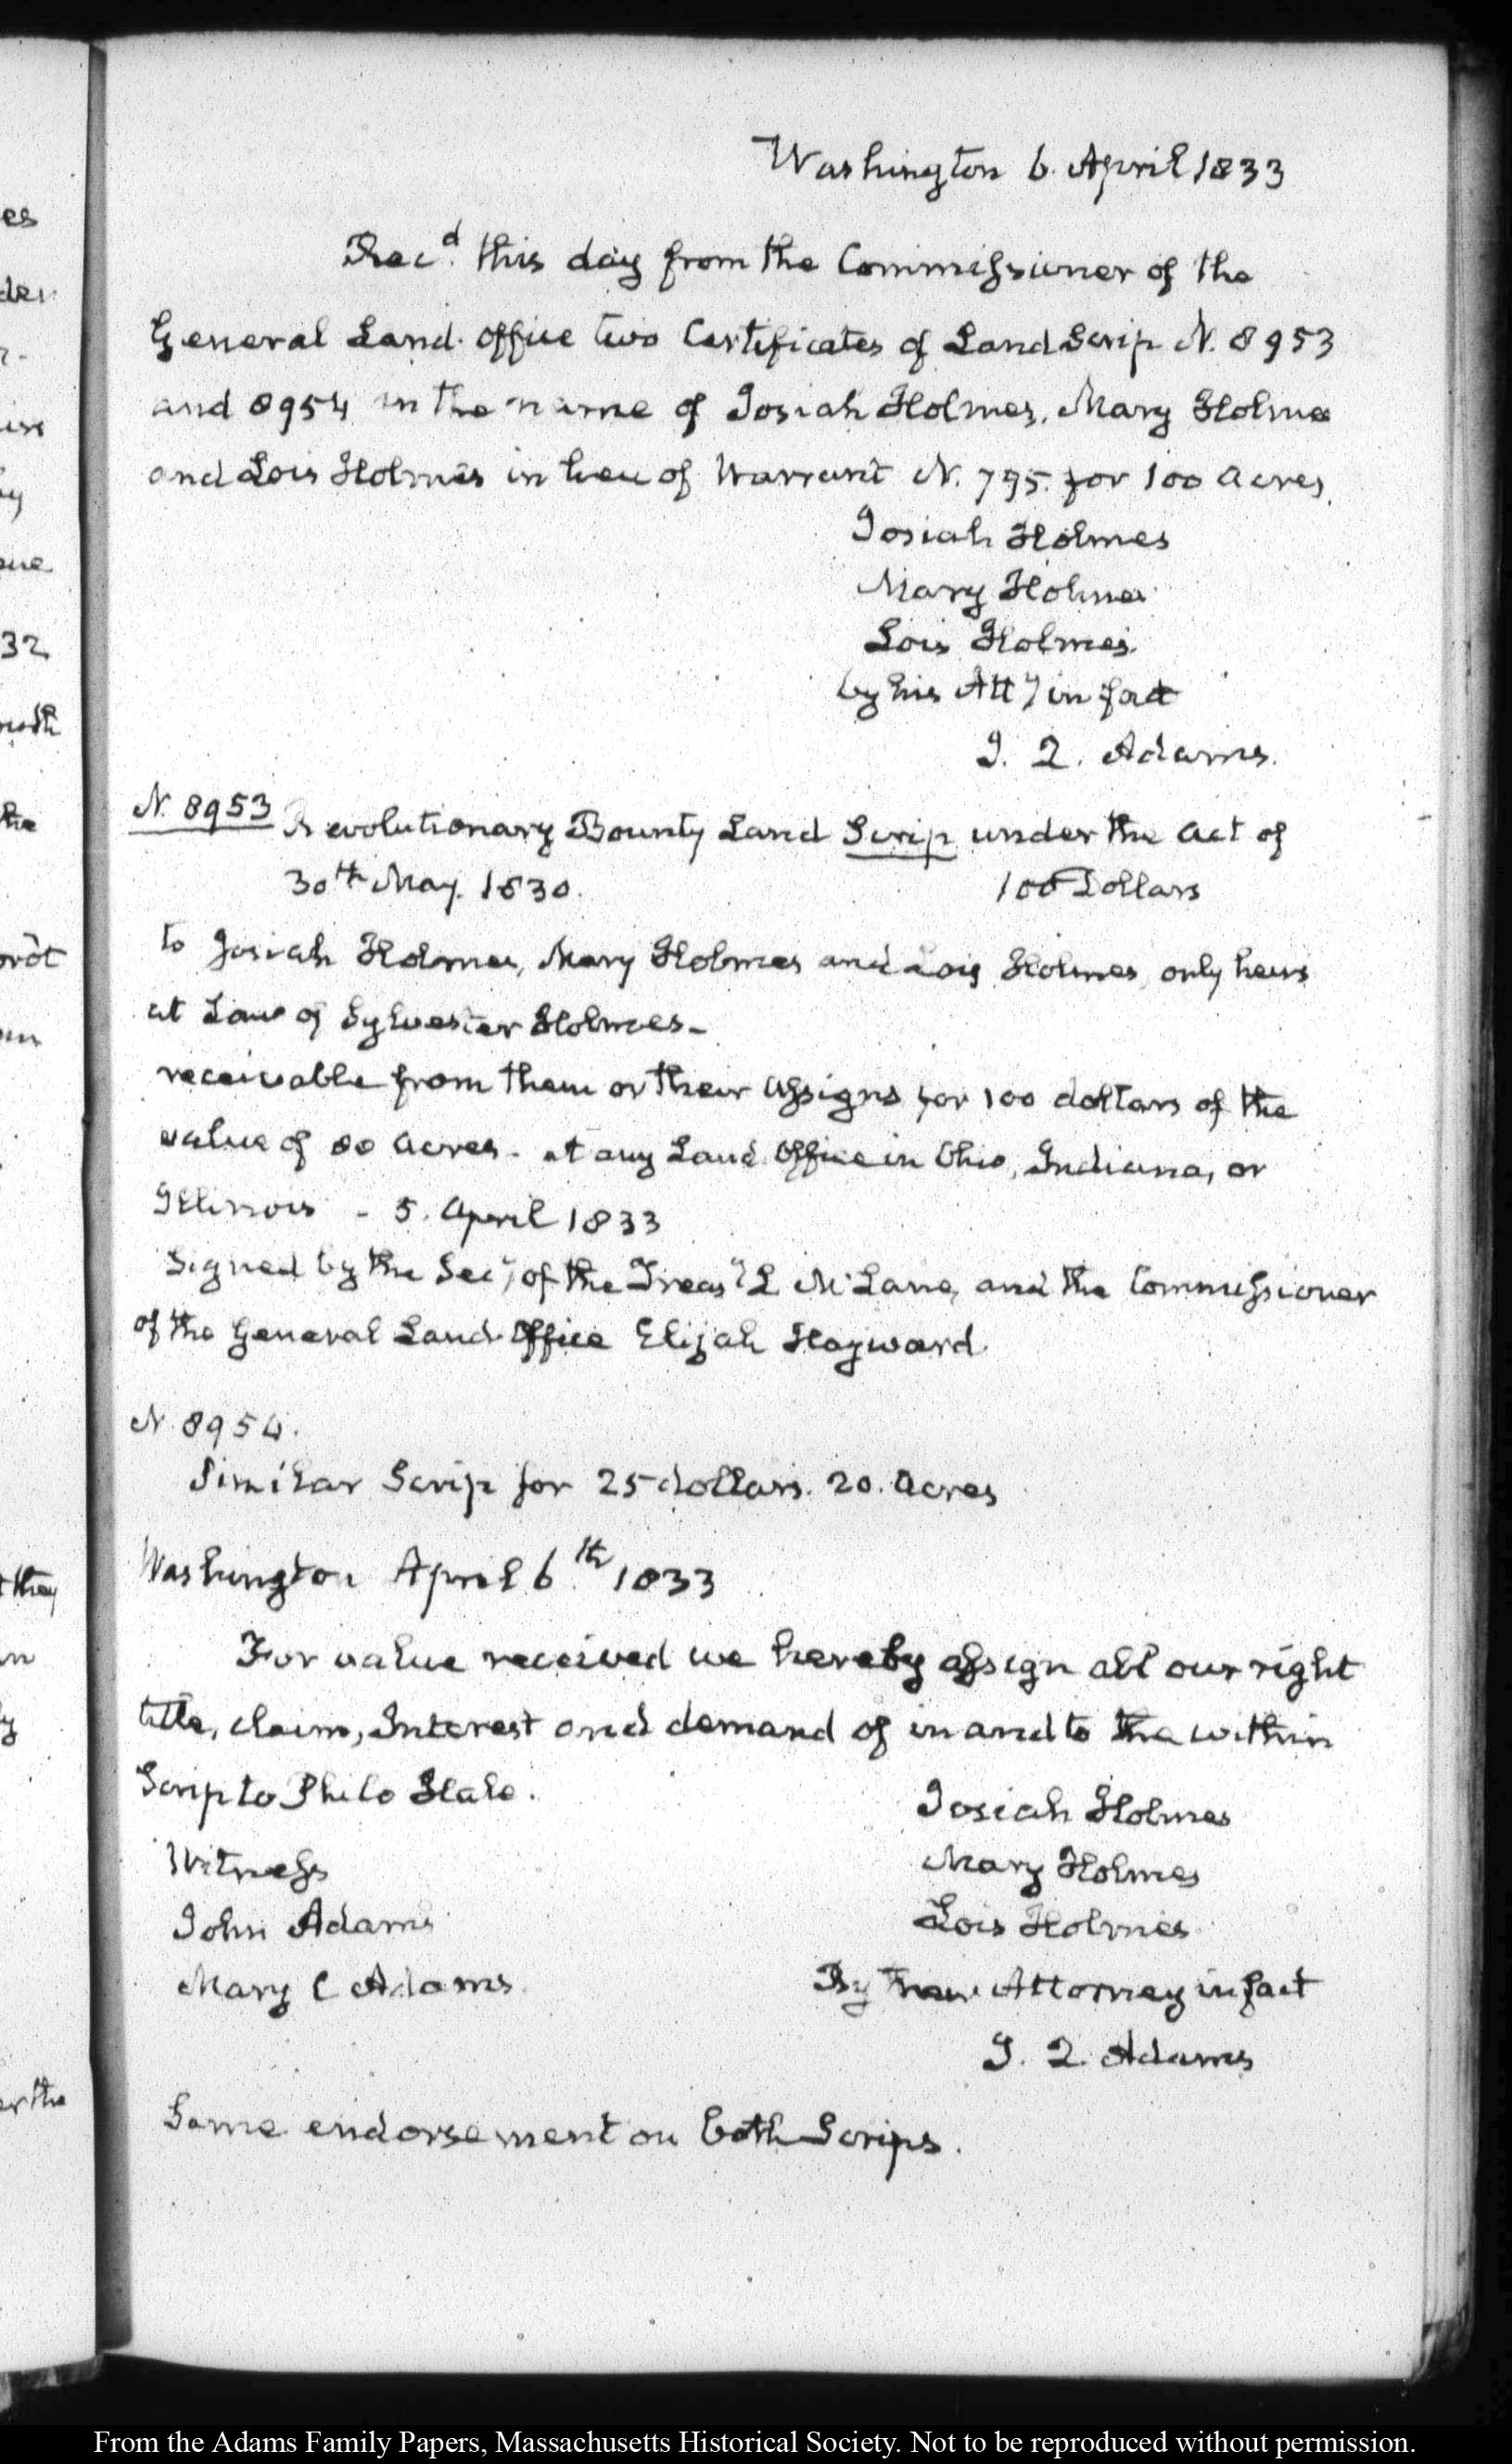 Washington 6. April 1833
Rec.d this day from the Commissioner of the
General Land Office two Certificates of Land Scrip N. 8953
and 8954 in the name of Josiah Holmes, Mary Holmes
and Lois Holmes in lieu of Warrant N. 795. for 100 Acres.
Josiah Holmes
Mary Holmes
Lois Holmes
by his Atty in fact
J. Q. Adams.
N. 8953 Revolutionary Bounty Land Scrip under the Act of
30th May. 1830. 100 Dollars
to Josiah Holmes, Mary Holmes and Lois Holmes, only heirs
at Law of Sylvester Holmes-
receivable from them or their Assigns for 100 dollars of the
value of 80 Acres- at any Land Office in Ohio, Indiana, or
Illinois - 5. April 1833
Signed by the Secy of the Treasy L McLane, and the Commissioner
of the General Land Office Elijah Hayward.
N. 8954.
Similar Scrip for 25 dollars. 20. Acres
Washington April 6.th 1833
For value received we hereby assign all our right
title, claim, Interest and demand of in and to the within
Scrip to Philo Hale.
Josiah Holmes
Witness
Mary Holmes
John Adams
Lois Holmes
Mary C Adams.
By their Attorney in fact
J. Q. Adams
Same endorsement on both Scrips.
es
32
the
they
From the Adams Family Papers, Massachusetts Historical Society. Not to be reproduced without permission.